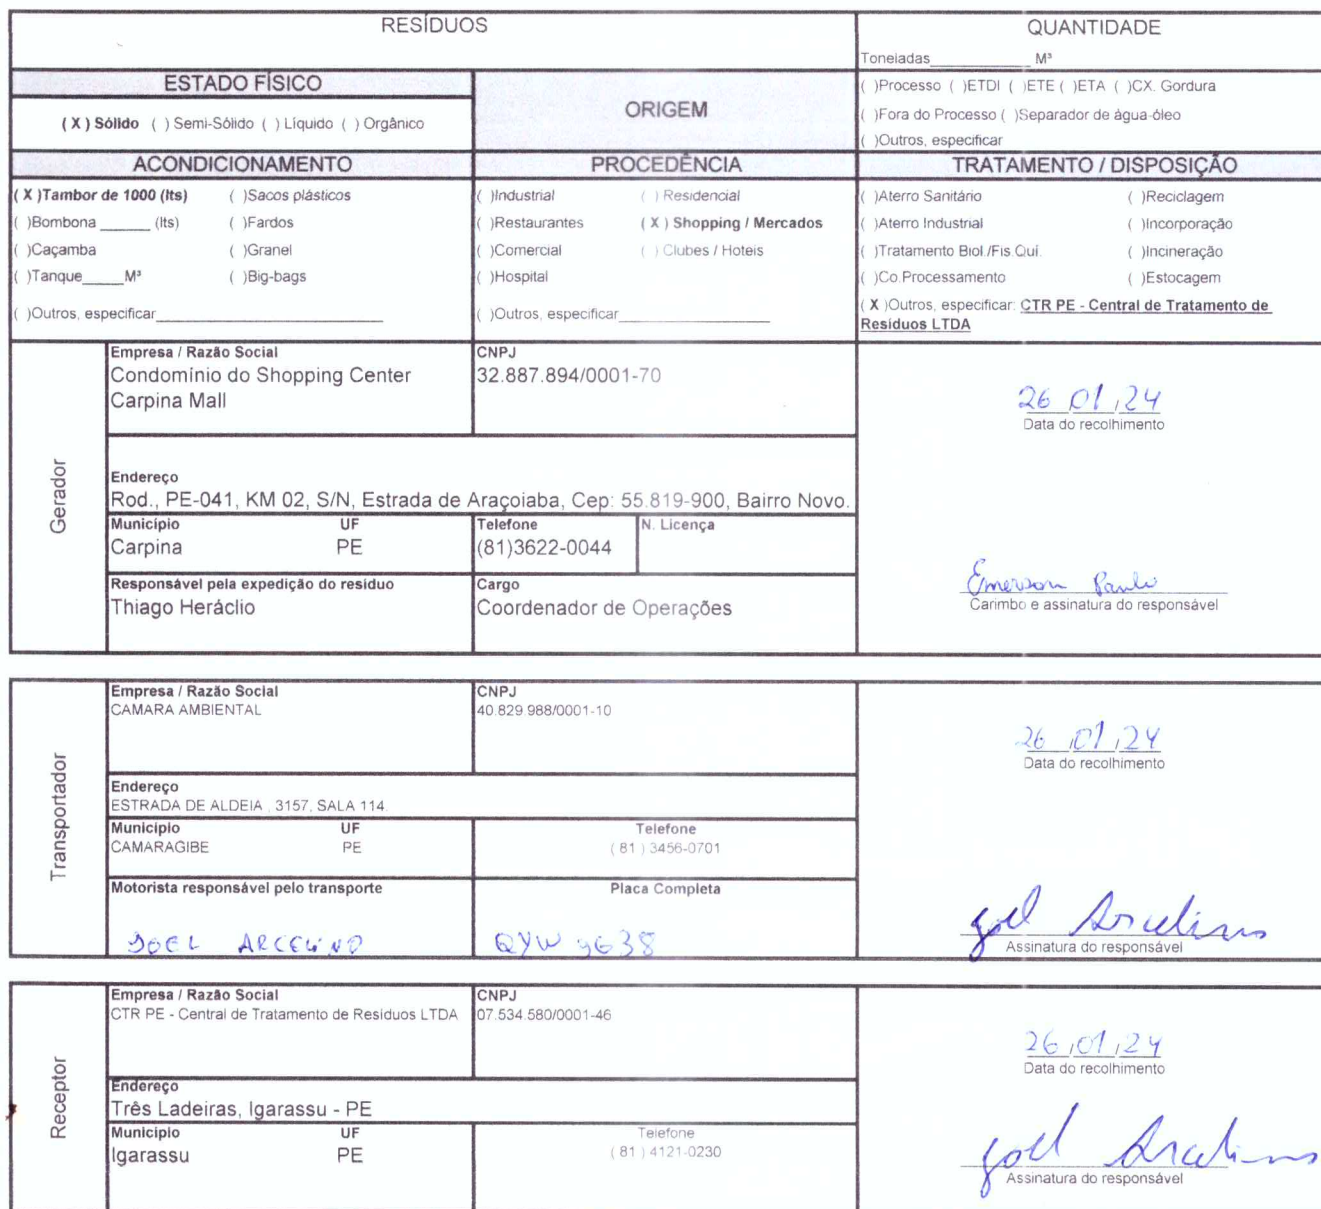 RESÍDUOS
QUANTIDADE
Toneladas____________ M³
ESTADO FÍSICO
( X ) Sólido ( ) Semi-Sólido ( ) Líquido ( ) Orgânico
ORIGEM
( )Processo ( )ETDI ( )ETE ( )ETA ( )CX. Gordura
( )Fora do Processo ( )Separador de água-óleo
( )Outros, especificar
ACONDICIONAMENTO
( X )Tambor de 1000 (lts) ( )Sacos plásticos
( )Bombona ______ (lts) ( )Fardos
( )Caçamba ( )Granel
( )Tanque_____M³ ( )Big-bags
( )Outros, especificar___________________________
PROCEDÊNCIA
( )Industrial ( ) Residencial
( )Restaurantes ( X ) Shopping / Mercados
( )Comercial ( ) Clubes / Hoteis
( )Hospital
( )Outros, especificar__________________
TRATAMENTO / DISPOSIÇÃO
( )Aterro Sanitário ( )Reciclagem
( )Aterro Industrial ( )Incorporação
( )Tratamento Biol./Fis.Quí. ( )Incineração
( )Co.Processamento ( )Estocagem
( X )Outros, especificar: CTR PE - Central de Tratamento de
Resíduos LTDA
Gerador
Empresa / Razão Social
Condomínio do Shopping Center
Carpina Mall
CNPJ
32.887.894/0001-70
26 01 24
Data do recolhimento
Endereço
Rod., PE-041, KM 02, S/N, Estrada de Araçoiaba, Cep: 55.819-900, Bairro Novo.
Município UF
Carpina PE
Telefone
(81)3622-0044
N. Licença
Responsável pela expedição do resíduo
Thiago Heráclio
Cargo
Coordenador de Operações
Emerson Paulo
Carimbo e assinatura do responsável
Transportador
Empresa / Razão Social
CAMARA AMBIENTAL
CNPJ
40.829.988/0001-10
26 01 24
Data do recolhimento
Endereço
ESTRADA DE ALDEIA , 3157, SALA 114.
Município UF
CAMARAGIBE PE
Telefone
( 81 ) 3456-0701
Motorista responsável pelo transporte
JOEL ARCELINO
Placa Completa
QYW 9G38
Joel Arcelino
Assinatura do responsável
Receptor
Empresa / Razão Social
CTR PE - Central de Tratamento de Resíduos LTDA
CNPJ
07.534.580/0001-46
26 01 24
Data do recolhimento
Endereço
Três Ladeiras, Igarassu - PE
Município UF
Igarassu PE
Telefone
( 81 ) 4121-0230
Joel Arcelino
Assinatura do responsável